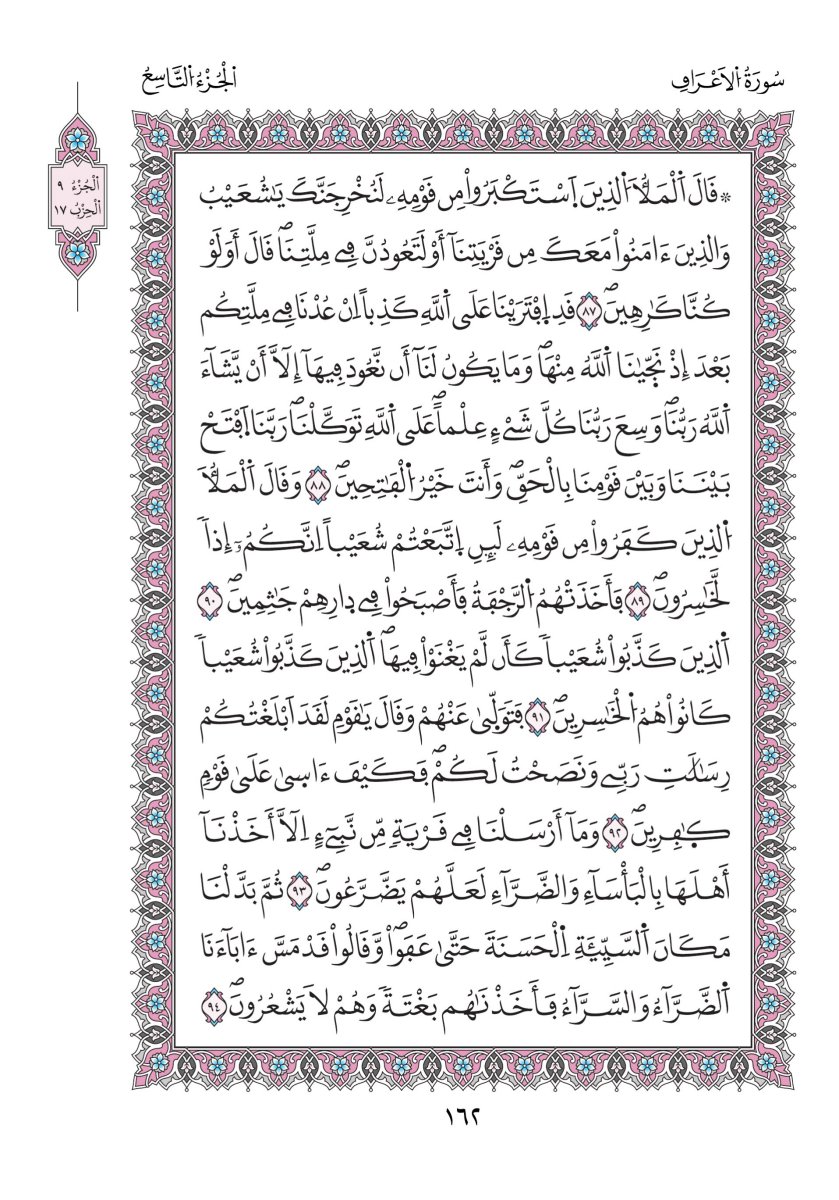 سُورَةُ الْأَعْرَافِ
الْجُزْءُ التَّاسِعُ
اَلْجُزْءُ ٩
اَلْحِزْبُ ١٧
۞ قَالَ اَ۬لْمَلَأُ اُ۬لذِينَ اَ۪سْتَكْبَرُواْ مِن قَوْمِهِۦ لَنُخْرِجَنَّكَ يَٰشُعَيْبُ
وَالذِينَ ءَامَنُواْ مَعَكَ مِن قَرْيَتِنَآ أَوْ لَتَعُودُنَّ فِے مِلَّتِنَاۖ قَالَ أَوَلَوْ
كُنَّا كَٰرِهِينَۖ ۝٨٧ قَدِ اِ۪فْتَرَيْنَا عَلَي اَ۬للَّهِ كَذِباً اِنْ عُدْنَا فِے مِلَّتِكُم
بَعْدَ إِذْ نَجّ۪يٰنَا اَ۬للَّهُ مِنْهَاۖ وَمَا يَكُونُ لَنَآ أَن نَّعُودَ فِيهَآ إِلَّآ أَنْ يَّشَآءَ
اَ۬للَّهُ رَبُّنَاۖ وَسِعَ رَبُّنَا كُلَّ شَےْءٍ عِلْماًۖ عَلَي اَ۬للَّهِ تَوَكَّلْنَاۖ رَبَّنَا اَ۪فْتَحْ
بَيْنَنَا وَبَيْنَ قَوْمِنَا بِالْحَقِّۖ وَأَنتَ خَيْرُ اُ۬لْفَٰتِحِينَۖ ۝٨٨ وَقَالَ اَ۬لْمَلَأُ
اُ۬لذِينَ كَفَرُواْ مِن قَوْمِهِۦ لَئِنِ اِ۪تَّبَعْتُمْ شُعَيْباً اِنَّكُمُۥٓ إِذاٗ
لَّخَٰسِرُونَۖ ۝٨٩ فَأَخَذَتْهُمُ اُ۬لرَّجْفَةُ فَأَصْبَحُواْ فِے دِارِهِمْ جَٰثِمِينَۖ ۝٩٠
اَ۬لذِينَ كَذَّبُواْ شُعَيْباٗ كَأَن لَّمْ يَغْنَوْاْ فِيهَاۖ اَ۬لذِينَ كَذَّبُواْ شُعَيْباٗ
كَانُواْ هُمُ اُ۬لْخَٰسِرِينَۖ ۝٩١ فَتَوَلّ۪يٰ عَنْهُمْ وَقَالَ يَٰقَوْمِ لَقَدَ اَبْلَغْتُكُمْ
رِسَٰلَٰتِ رَبِّے وَنَصَحْتُ لَكُمْۖ فَكَيْفَ ءَاس۪يٰ عَلَيٰ قَوْمٖ
كٰ۪فِرِينَۖ ۝٩٢ وَمَآ أَرْسَلْنَا فِے قَرْيَةٖ مِّن نَّبِےٓءٍ اِلَّآ أَخَذْنَآ
أَهْلَهَا بِالْبَأْسَآءِ وَالضَّرَّآءِ لَعَلَّهُمْ يَضَّرَّعُونَۖ ۝٩٣ ثُمَّ بَدَّلْنَا
مَكَانَ اَ۬لسَّيِّئَةِ اِ۬لْحَسَنَةَ حَتَّيٰ عَفَواْۖ وَّقَالُواْ قَدْ مَسَّ ءَابَآءَنَا
اَ۬لضَّرَّآءُ وَالسَّرَّآءُ فَأَخَذْنَٰهُم بَغْتَةٗ وَهُمْ لَا يَشْعُرُونَۖ ۝٩٤
١٦٢